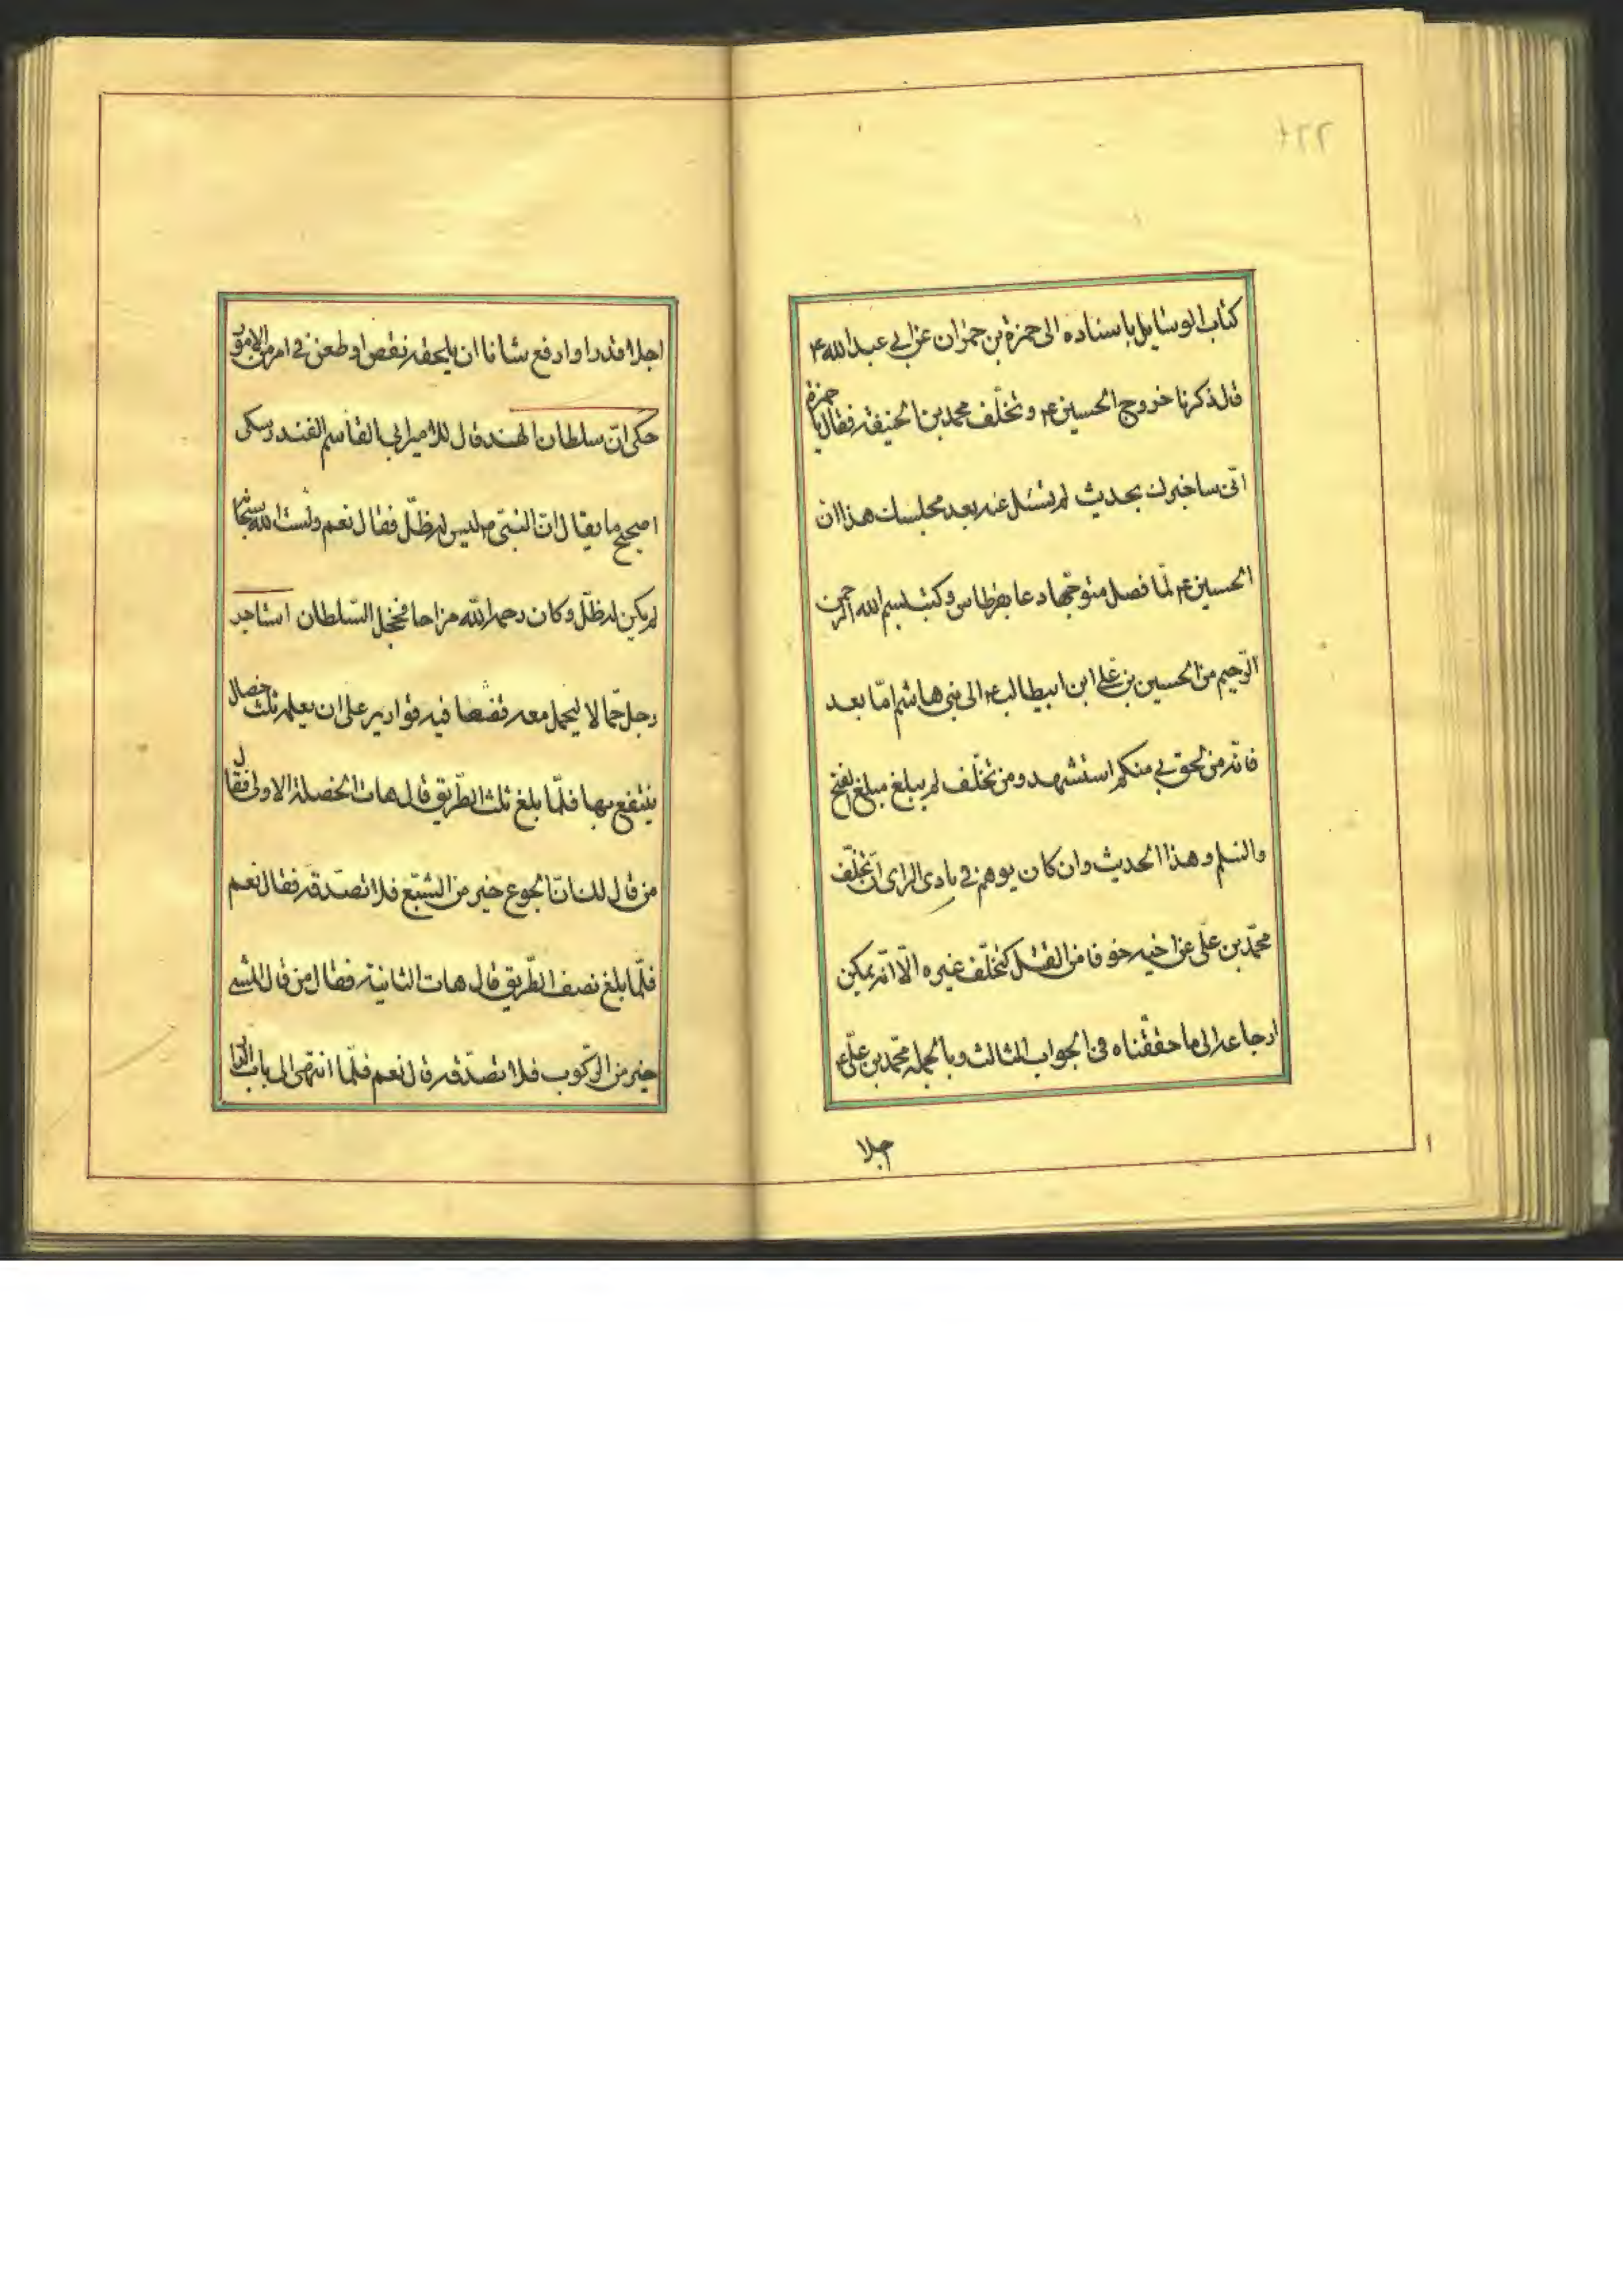 كتاب الوسايل باسناده الى حمزة بن حمران عن ابي عبد الله ع
قال ذكرنا خروج الحسين ع و تخلّف محمد بن الحنيفة فقال يا حمزة
انّى ساخبرك بحديث لم تسئل عنه بعد مجلسك هذا ان
الحسين ع لمّا فصل متوجّها دعا بقرطاس و كتب بسم الله الرحمن
الرّحيم من الحسين بن على ابن ابيطالب ع الى بنى هاشم امّا بعد
فانّه من لحق بي منكم استشهد و من تخلّف لم يبلغ مبلغ الفتح
والسّلم و هذا الحديث وان كان يوهم في بادى الراى ان تخلّف
محمّد بن علّى عن اخيه خوفا من القتل كتخلّف غيره الّا انّه يمكن
ارجاعه الى ما حققناه في الجواب الثالث و بالجملة محمّد بن علّى ع
جلا
اجلا قدرا و ارفع شانا ان يلحقه نقص او طعن في امر من الامور
حكى انّ سلطان الهند قال للامير ابى القاسم الفندرسكى
اصحيح ما يقال انّ النبىّ ص ليس له ظلّ فقال نعم و ليت الله سبحانه
لم يكن له ظلّ و كان رحمه الله مزاحا فخجل السّلطان استاجر
رجل حمّالا ليحمل معه قفصا فيه قوارير على ان يعلمه ثلث خصال
ينتفع بها فلمّا بلغ ثلث الطّريق قال هات الخصلة الاولى فقال
من قال لك انّ الجوع خير من الشبّع فلا تصدّقه فقال نعم
فلمّا بلغ نصف الطّريق قال هات الثانية فقال من قال المشى
خير من الرّكوب فلا تصدّقه قال نعم فلمّا انتهى الى باب الدار